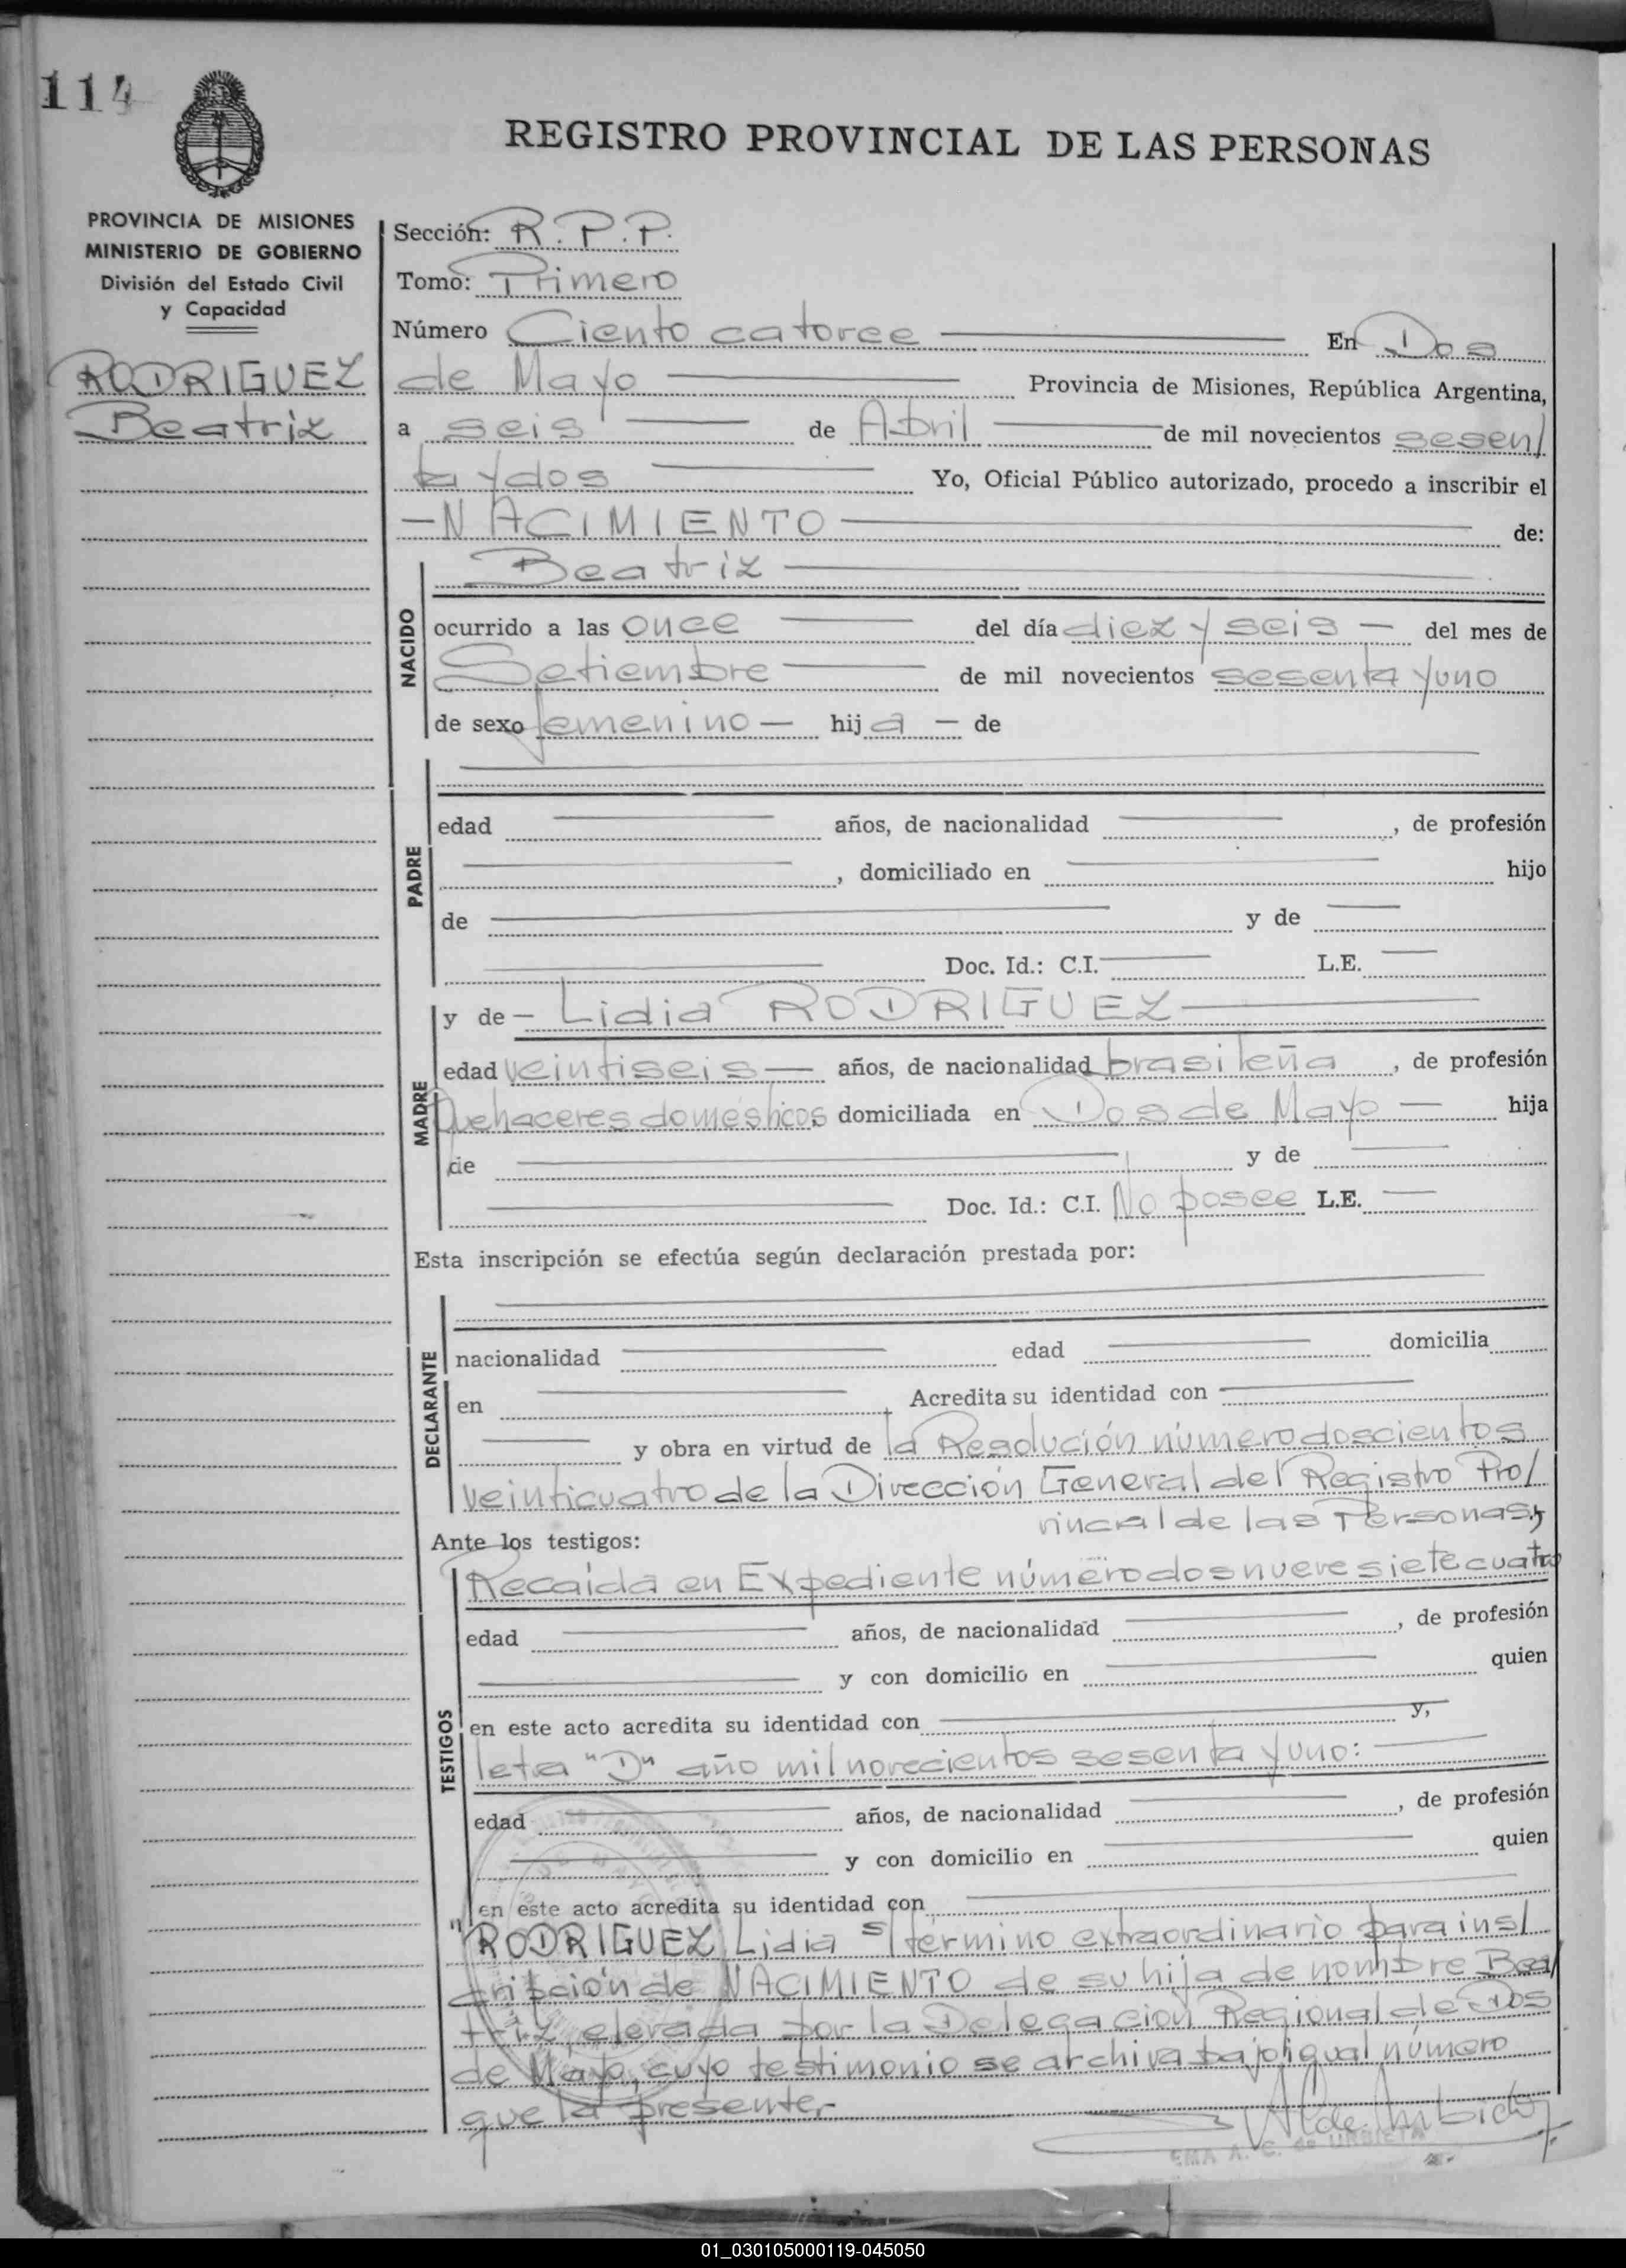 114
REGISTRO PROVINCIAL DE LAS PERSONAS
PROVINCIA DE MISIONES
MINISTERIO DE GOBIERNO
División del Estado Civil
y Capacidad
RODRIGUEZ
Beatriz
Sección: R.P.P.
Tomo: Primero
Número Ciento catorce En Dos
de Mayo Provincia de Misiones, República Argentina,
a seis de Abril de mil novecientos sesen/
ta y dos Yo, Oficial Público autorizado, procedo a inscribir el
NACIMIENTO de:
NACIDO
Beatriz
ocurrido a las once del día diez y seis del mes de
Setiembre de mil novecientos sesenta y uno
de sexo femenino hija de
PADRE
edad años, de nacionalidad , de profesión
, domiciliado en hijo
de y de
Doc. Id.: C.I. L.E.
MADRE
y de Lidia RODRIGUEZ
edad veintiseis años, de nacionalidad brasileña , de profesión
Quehaceres domésticos domiciliada en Dos de Mayo hija
de y de
Doc. Id.: C.I. No posee L.E.
Esta inscripción se efectúa según declaración prestada por:
DECLARANTE
nacionalidad edad domicilia
en , Acredita su identidad con
y obra en virtud de la Resolución número doscientos
veinticuatro de la Dirección General del Registro Pro/
vincial de las Personas,
Ante los testigos:
TESTIGOS
Recaída en Expediente número dos nueve siete cuatro
edad años, de nacionalidad , de profesión
y con domicilio en quien
en este acto acredita su identidad con y,
letra "D" año mil novecientos sesenta y uno:
edad años, de nacionalidad , de profesión
y con domicilio en quien
en este acto acredita su identidad con
"RODRIGUEZ Lidia s/ término extraordinario para ins/
cripción de NACIMIENTO de su hija de nombre Bea/
triz, elevada por la Delegación Regional de Dos
de Mayo, cuyo testimonio se archiva bajo igual número
que la presente.
EMA A. C. de URBIETA
01_030105000119-045050